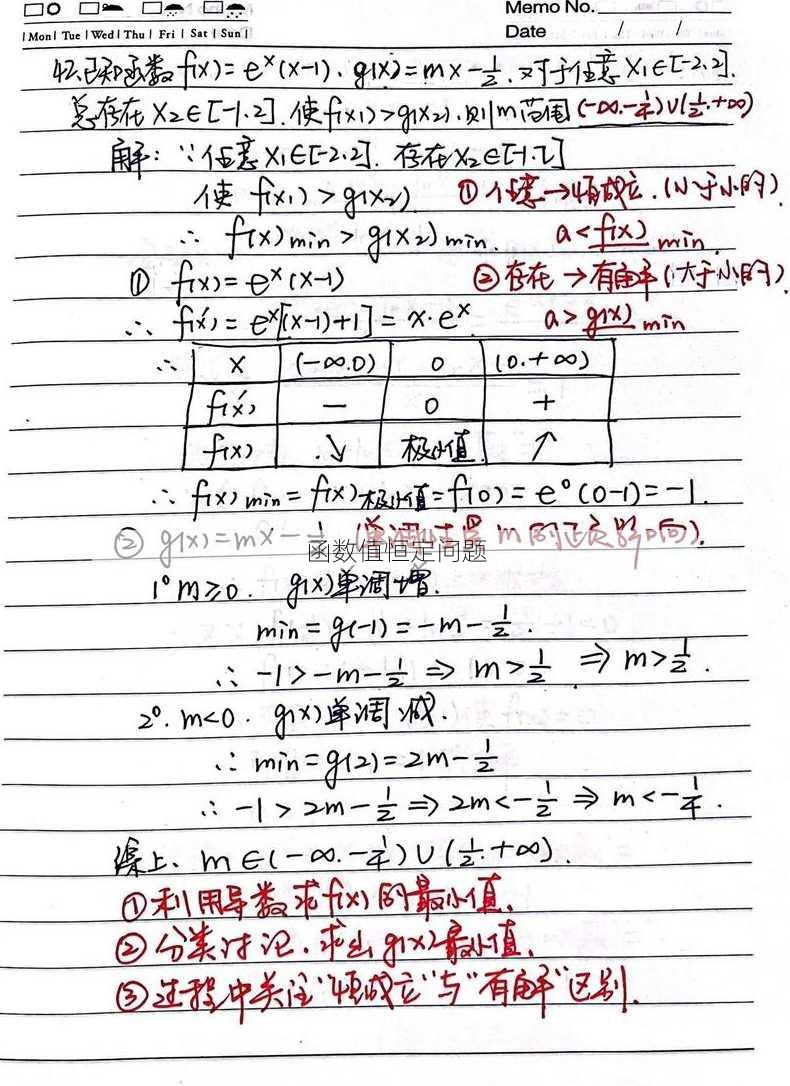 Memo No.
Mon Tue Wed Thu Fri Sat Sun
Date / /
42.已知函数f(x)=e^x(x-1),g(x)=mx-1/2,对于任意x₁∈[-2,2],
总存在x₂∈[-1,2],使f(x₁)>g(x₂),则m范围(-∞,-1/4)∪(1/2,+∞)
解:∵任意x₁∈[-2,2],存在x₂∈[-1,2]
使 f(x₁)>g(x₂) ①任意→恒成立.(小于小的)
∴ f(x)min>g(x₂)min. a<f(x)min.
① f(x)=e^x(x-1) ②存在→有解(大于小的)
∴ f'(x)=e^x[(x-1)+1]=x·e^x a>g(x)min
∴ x (-∞,0) 0 (0,+∞)
f'(x) - 0 +
f(x) ↘ 极小值 ↗
∴ f(x)min=f(x)极小值=f(0)=e⁰(0-1)=-1.
② g(x)=mx-1/2 (单调性受m的正负影响).
函数值恒定问题
1° m≥0. g(x)单调增.
min=g(-1)=-m-1/2.
∴ -1>-m-1/2 ⇒ m>1/2 ⇒ m>1/2.
2°. m<0. g(x)单调减.
∴ min=g(2)=2m-1/2
∴ -1>2m-1/2 ⇒ 2m<-1/2 ⇒ m<-1/4.
综上、m∈(-∞,-1/4)∪(1/2,+∞).
①利用导数求f(x)的最小值.
②分类讨论.求出g(x)最小值.
③过程中关注"恒成立"与"有解"区别.